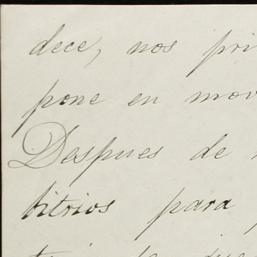 dece, nos pri
pone en mov
Despues de
bitrios para